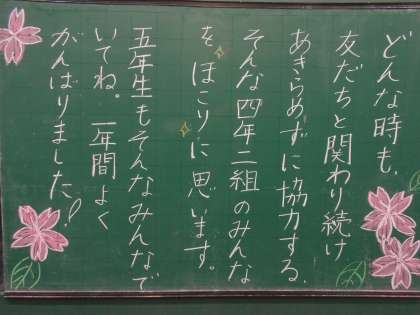 どんな時も、
友だちと関わり続け
あきらめずに協力する、
そんな四年二組のみんな
をほこりに思います。
五年生もそんなみんなで
いてね。一年間よく
がんばりました!